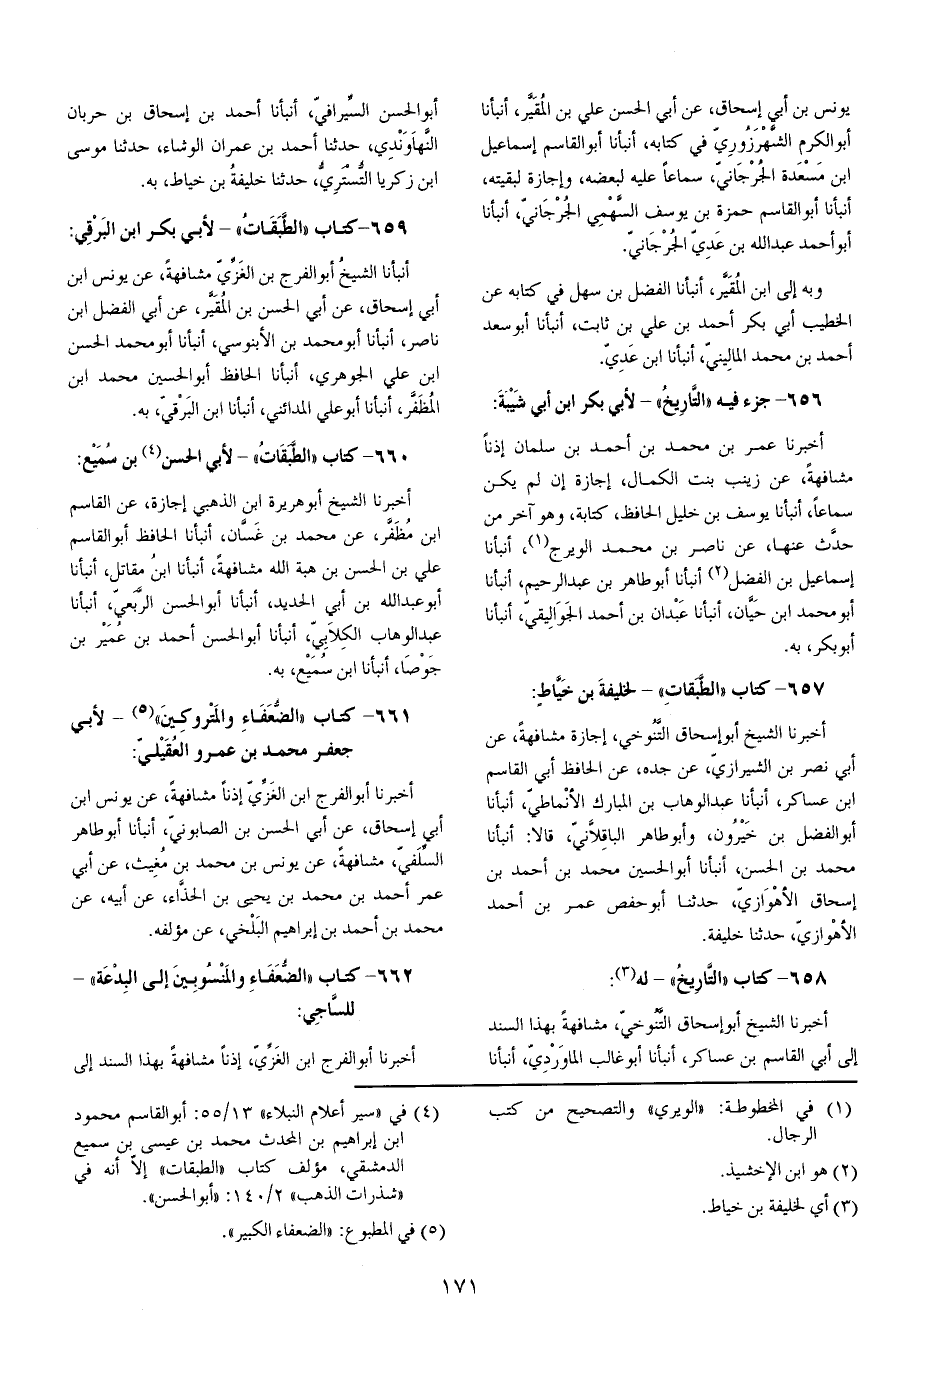 يونس بن أبي إسحاق، عن أبي الحسن علي بن المُقَيَّر، أنبأنا
أبوالكرم الشَّهْرَزُوريّ في كتابه، أنبأنا أبوالقاسم إسماعيل
ابن مَسْعَدة الجُرْجانيّ، سماعاً عليه لبعضه، وإجازة لبقيته،
أنبأنا أبوالقاسم حمزة بن يوسف السَّهْمي الجُرْجانيّ، أنبأنا
أبوأحمد عبدالله بن عَديّ الجُرْجانيّ.
وبه إلى ابن المُقَيَّر، أنبأنا الفضل بن سهل في كتابه عن
الخطيب أبي بكر أحمد بن علي بن ثابت، أنبأنا أبوسعد
أحمد بن محمد المالينيّ، أنبأنا ابن عَديّ.
٦٥٦- جزء فيه «التَّاريخُ» – لأبي بكر ابن أبي شَيْبَةَ:
أخبرنا عمر بن محمد بن أحمد بن سلمان إذناً
مشافهةً، عن زينب بنت الكمال، إجازة إن لم يكن
سماعاً، أنبأنا يوسف بن خليل الحافظ، كتابة، وهو آخر من
حدَّث عنها، عن ناصر بن محمد الويرج(١)، أنبأنا
إسماعيل بن الفضل(٢) أنبأنا أبوطاهر بن عبدالرحيم، أنبأنا
أبومحمد ابن حَيَّان، أنبأنا عَبْدان بن أحمد الجَوَاليقيّ، أنبأنا
أبوبكر، به.
٦٥٧- كتاب «الطَّبَقات» – لخليفةَ بن خَيَّاطٍ:
أخبرنا الشيخ أبوإسحاق التَّنُوخي، إجازة مشافهةً، عن
أبي نصر بن الشيرازيّ، عن جده، عن الحافظ أبي القاسم
ابن عساكر، أنبأنا عبدالوهاب بن المبارك الأنْماطيّ، أنبأنا
أبوالفضل بن خَيْرُون، وأبوطاهر الباقِلاَّنيّ، قالا: أنبأنا
محمد بن الحسن، أنبأنا أبوالحسين محمد بن أحمد بن
إسحاق الأهْوَازيّ، حدثنا أبوحفص عمر بن أحمد
الأهْوازيّ، حدثنا خليفة.
٦٥٨- كتاب «التَّاريخُ» – له(٣):
أخبرنا الشيخ أبوإسحاق التَّنُوخيّ، مشافهةً بهذا السند
إلى أبي القاسم بن عساكر، أنبأنا أبوغالب الماوَرْديّ، أنبأنا
أبوالحسن السِّيرافيّ، أنبأنا أحمد بن إسحاق بن حربان
النَّهَاوَنْدي، حدثنا أحمد بن عمران الوشاء، حدثنا موسى
ابن زكريا التُّسْتَريُّ، حدثنا خليفةُ بن خياط، به.
٦٥٩- كتاب «الطَّبَقَاتُ» – لأبي بكر ابن البَرْقِي:
أنبأنا الشيخُ أبوالفرج بن الغَزِّيّ مشافهةً، عن يونس ابن
أبي إسحاق، عن أبي الحسن بن المُقَيَّر، عن أبي الفضل ابن
ناصر، أنبأنا أبومحمد بن الأبنوسي، أنبأنا أبومحمد الحسن
ابن علي الجوهري، أنبأنا الحافظ أبوالحسين محمد ابن
المُظفَّر، أنبأنا أبوعلي المدائني، أنبأنا ابن البَرْقيّ، به.
٦٦٠- كتاب «الطَّبَقَاتُ» – لأبي الحسن(٤) بن سُمَيْع:
أخبرنا الشيخ أبوهريرة ابن الذهبي إجازة، عن القاسم
ابن مُظفَّر، عن محمد بن غَسَّان، أنبأنا الحافظ أبوالقاسم
علي بن الحسن بن هبة الله مشافهةً، أنبأنا ابنُ مقاتل، أنبأنا
أبوعبدالله بن أبي الحديد، أنبأنا أبوالحسن الرَّبَعيّ، أنبأنا
عبدالوهاب الكِلاَبيّ، أنبأنا أبوالحسن أحمد بن عُمَيْر بن
جَوْصَا، أنبأنا ابن سُمَيْع، به.
٦٦١- كتاب «الضُّعَفَاءِ والمَتْروكِينَ»(٥) – لأبي
جعفر محمد بن عمرو العُقَيْليّ:
أخبرنا أبوالفرج ابن الغَزِّيّ إذناً مشافهةً، عن يونس ابن
أبي إسحاق، عن أبي الحسن بن الصابونيّ، أنبأنا أبوطاهر
السِّلَفيّ، مشافهةً، عن يونس بن محمد بن مُغيث، عن أبي
عمر أحمد بن محمد بن يحيى بن الحذَّاء، عن أبيه، عن
محمد بن أحمد بن إبراهيم البَلْخي، عن مؤلفه.
٦٦٢- كتاب «الضُّعَفَاءِ والمَنْسُوبِينَ إلى البِدْعَة» –
للسَّاجِي:
أخبرنا أبوالفرج ابن الغَزِّيّ، إذناً مشافهةً بهذا السند إلى
(١) في المخطوطة: «الويري» والتصحيح من كتب
الرجال.
(٢) هو ابن الإخشيذ.
(٣) أي لخليفة بن خياط.
(٤) في «سير أعلام النبلاء» ٥٥/١٣: أبوالقاسم محمود
ابن إبراهيم بن المحدث محمد بن عيسى بن سميع
الدمشقي، مؤلف كتاب «الطبقات» إلاّ أنه في
«شذرات الذهب» ١٤٠/٢: «أبوالحسن».
(٥) في المطبوع: «الضعفاء الكبير».
١٧١